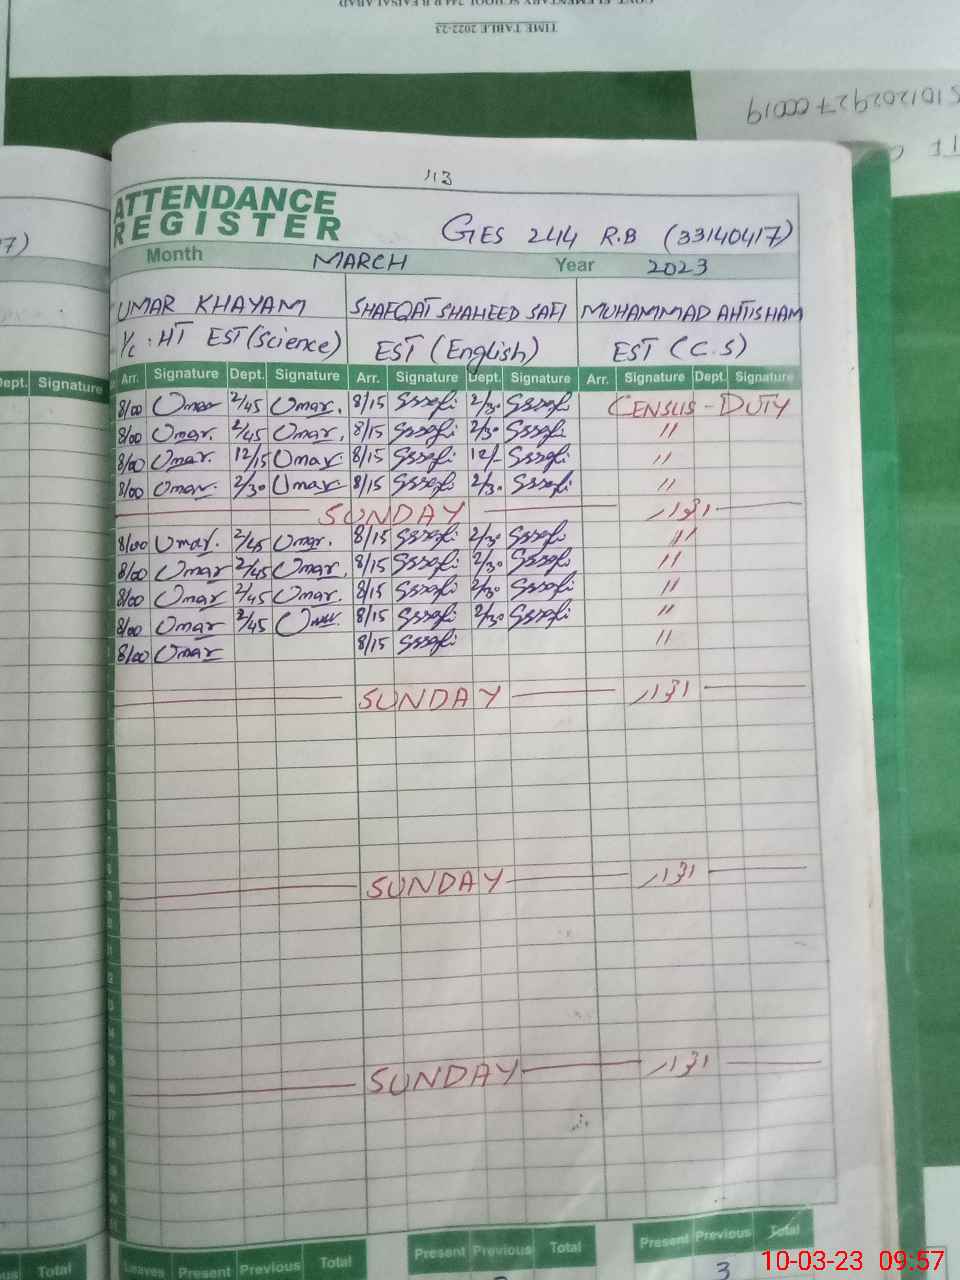 GOVT. ELEMENTARY SCHOOL 244 R.B FAISALABAD
TIME TABLE 2022-23
113
ATTENDANCE
REGISTER
GES 244 R.B (33140417)
Month MARCH Year 2023
UMAR KHAYAM SHAFQAT SHAHEED SAFI MUHAMMAD AHTISHAM
I/C . HT EST (Science) EST (English) EST (C.S)
Dept. Signature Arr. Signature Dept. Signature Arr. Signature Dept. Signature Arr. Signature Dept. Signature
8/00 Umar 2/45 Umar. 8/15 Sssafi 2/30 Sssafi CENSUS - DUTY
8/00 Umar. 2/45 Umar. 8/15 Sssafi 2/30 Sssafi "
8/00 Umar. 12/15 Umar. 8/15 Sssafi 12/- Sssafi "
8/00 Umar. 2/30 Umar 8/15 Sssafi 2/30 Sssafi "
SUNDAY اتوار
8/00 Umar. 2/45 Umar. 8/15 Sssafi 2/30 Sssafi "
8/00 Umar 2/45 Umar. 8/15 Sssafi 2/30 Sssafi "
8/00 Umar 2/45 Umar. 8/15 Sssafi 2/30 Sssafi "
8/00 Umar 2/45 Umar. 8/15 Sssafi 2/30 Sssafi "
8/00 Umar 8/15 Sssafi "
SUNDAY اتوار
SUNDAY اتوار
SUNDAY اتوار
Total Leaves Present Previous Total Present Previous Total Present Previous Total
3
10-03-23 09:57